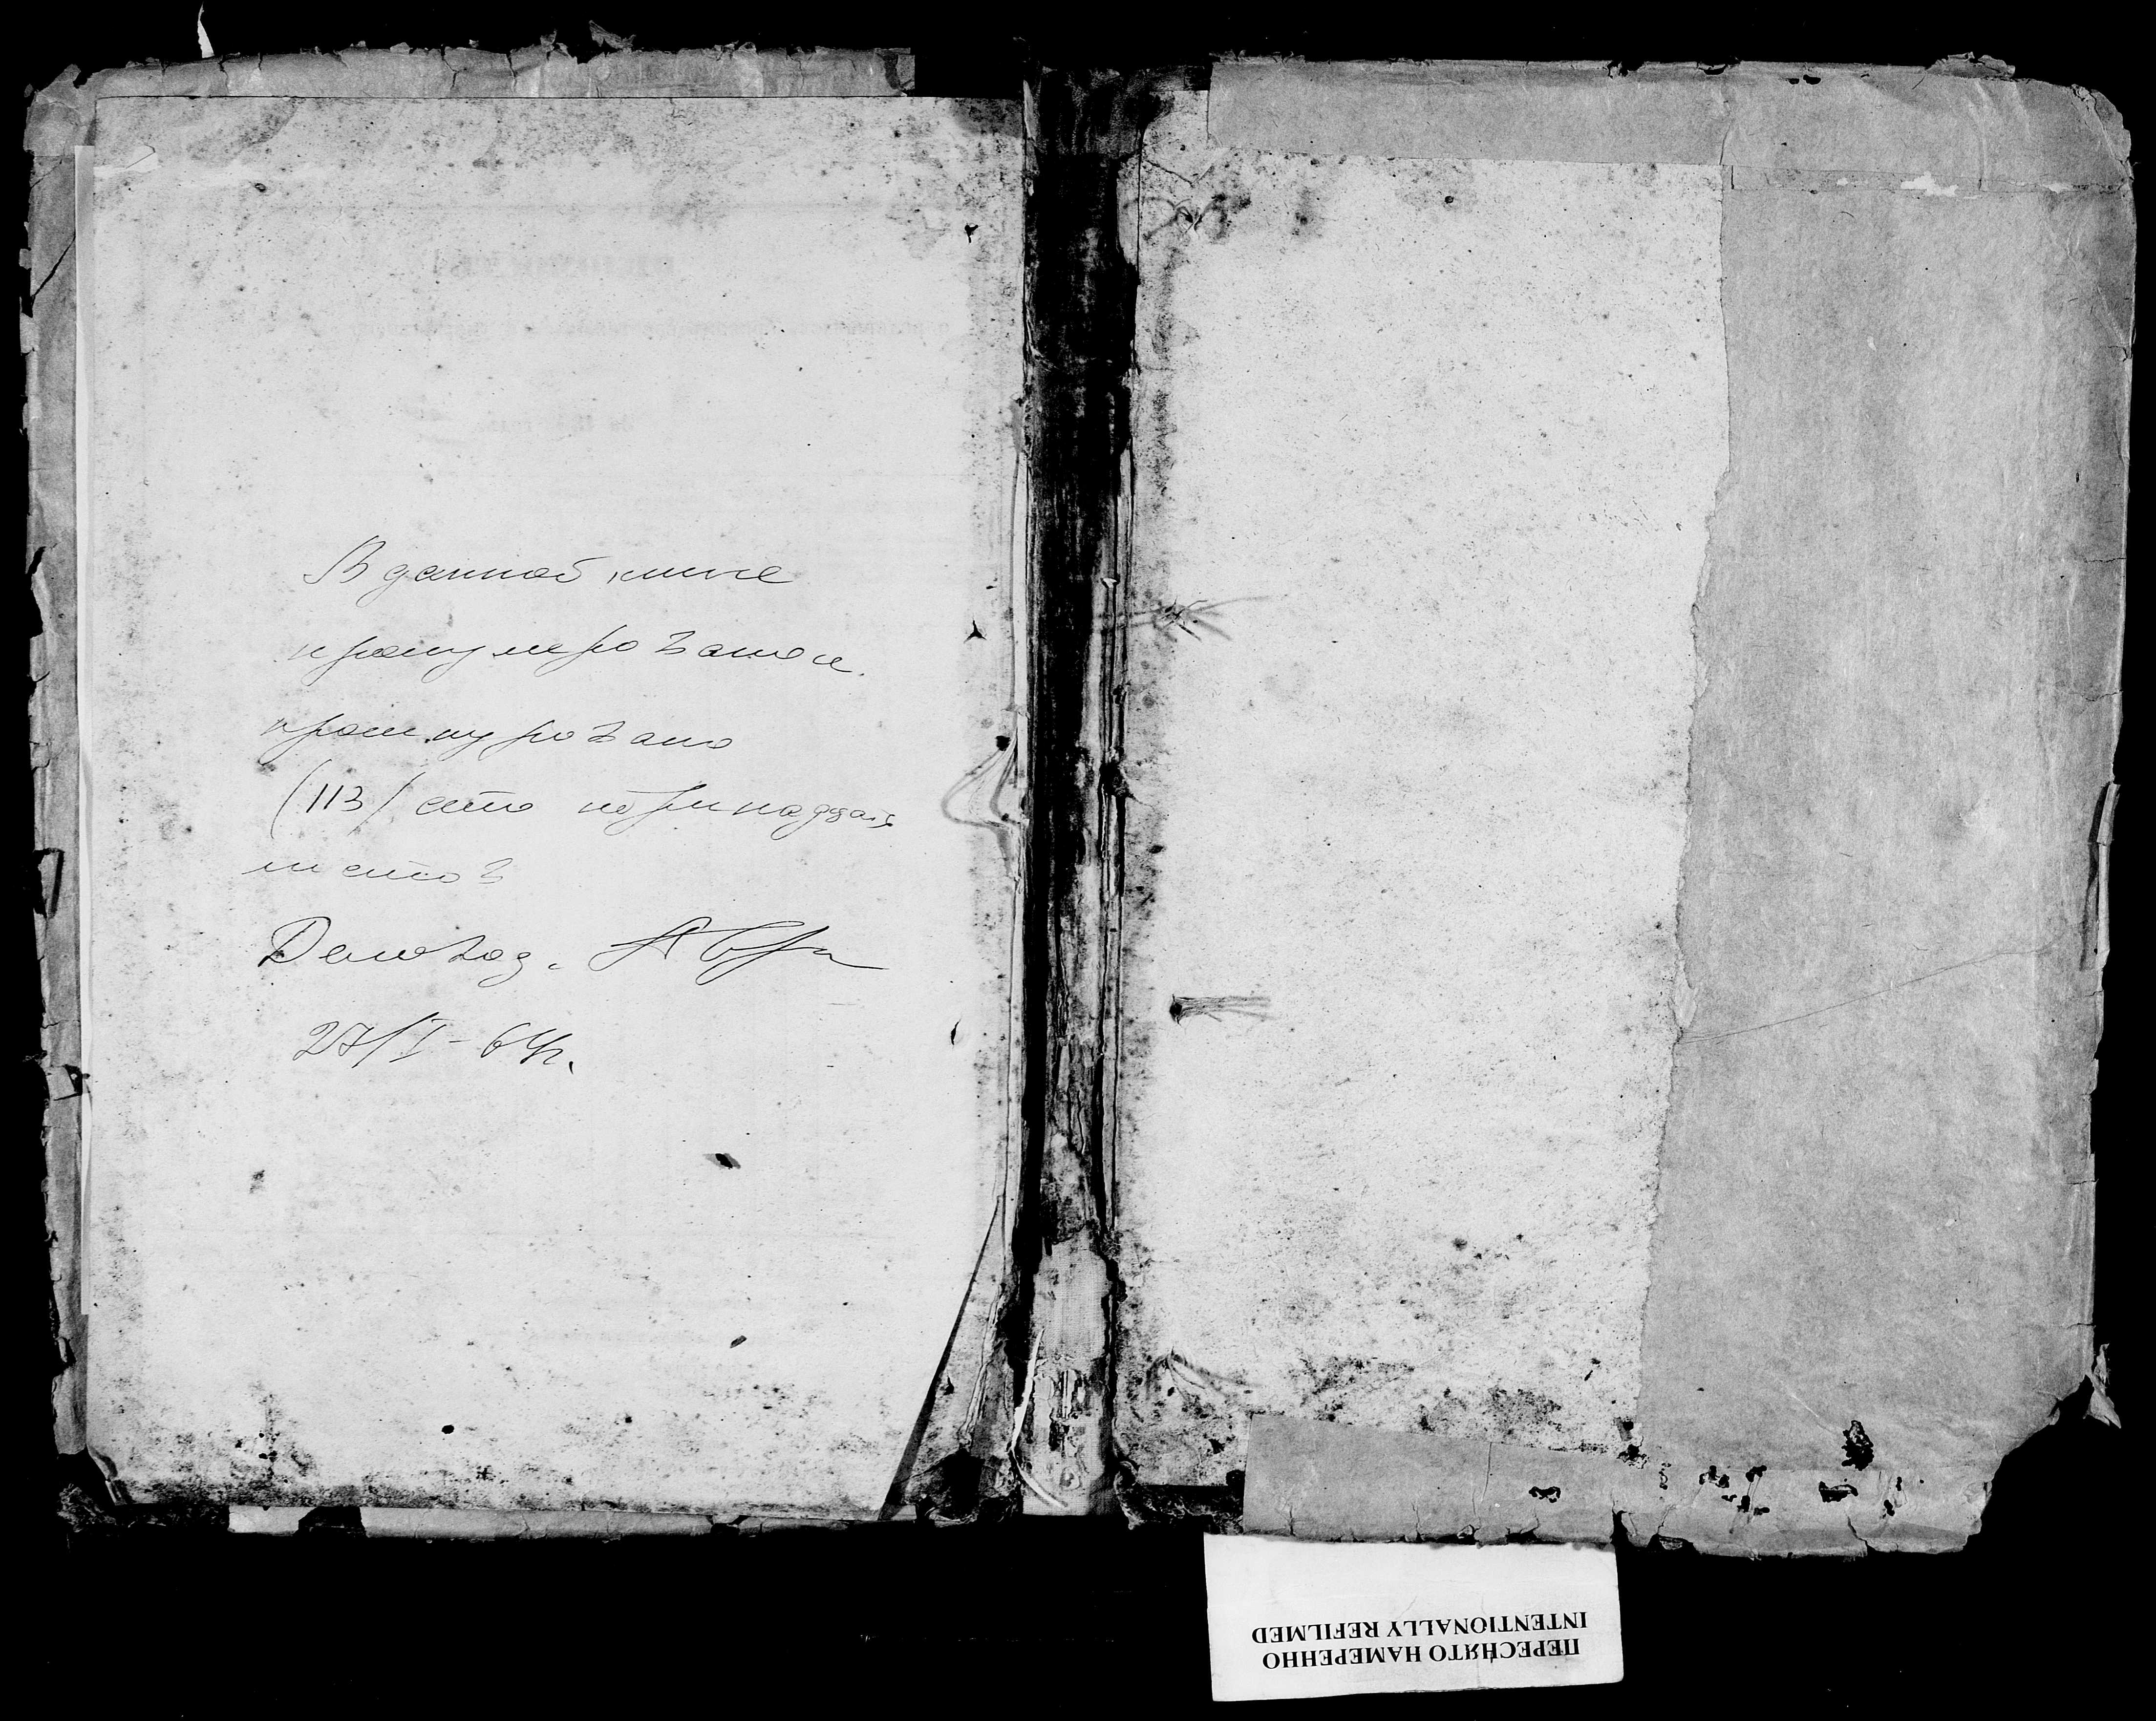 В данной книге
пронумеровано и
прошнуровано
(113) сто тринадцать
листов
Деловод.
27/I-64г.
ПЕРЕСНЯТО НАМЕРЕННО
INTENTIONALLY REFILMED